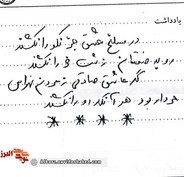 یادداشت
در مسلخ عشق جز نکو را نکشند
روبه صفتان زشت خو را نکشند
گر عاشق صادقی ز مردن مهراس
مردار بود هر آنکه او را نکشند